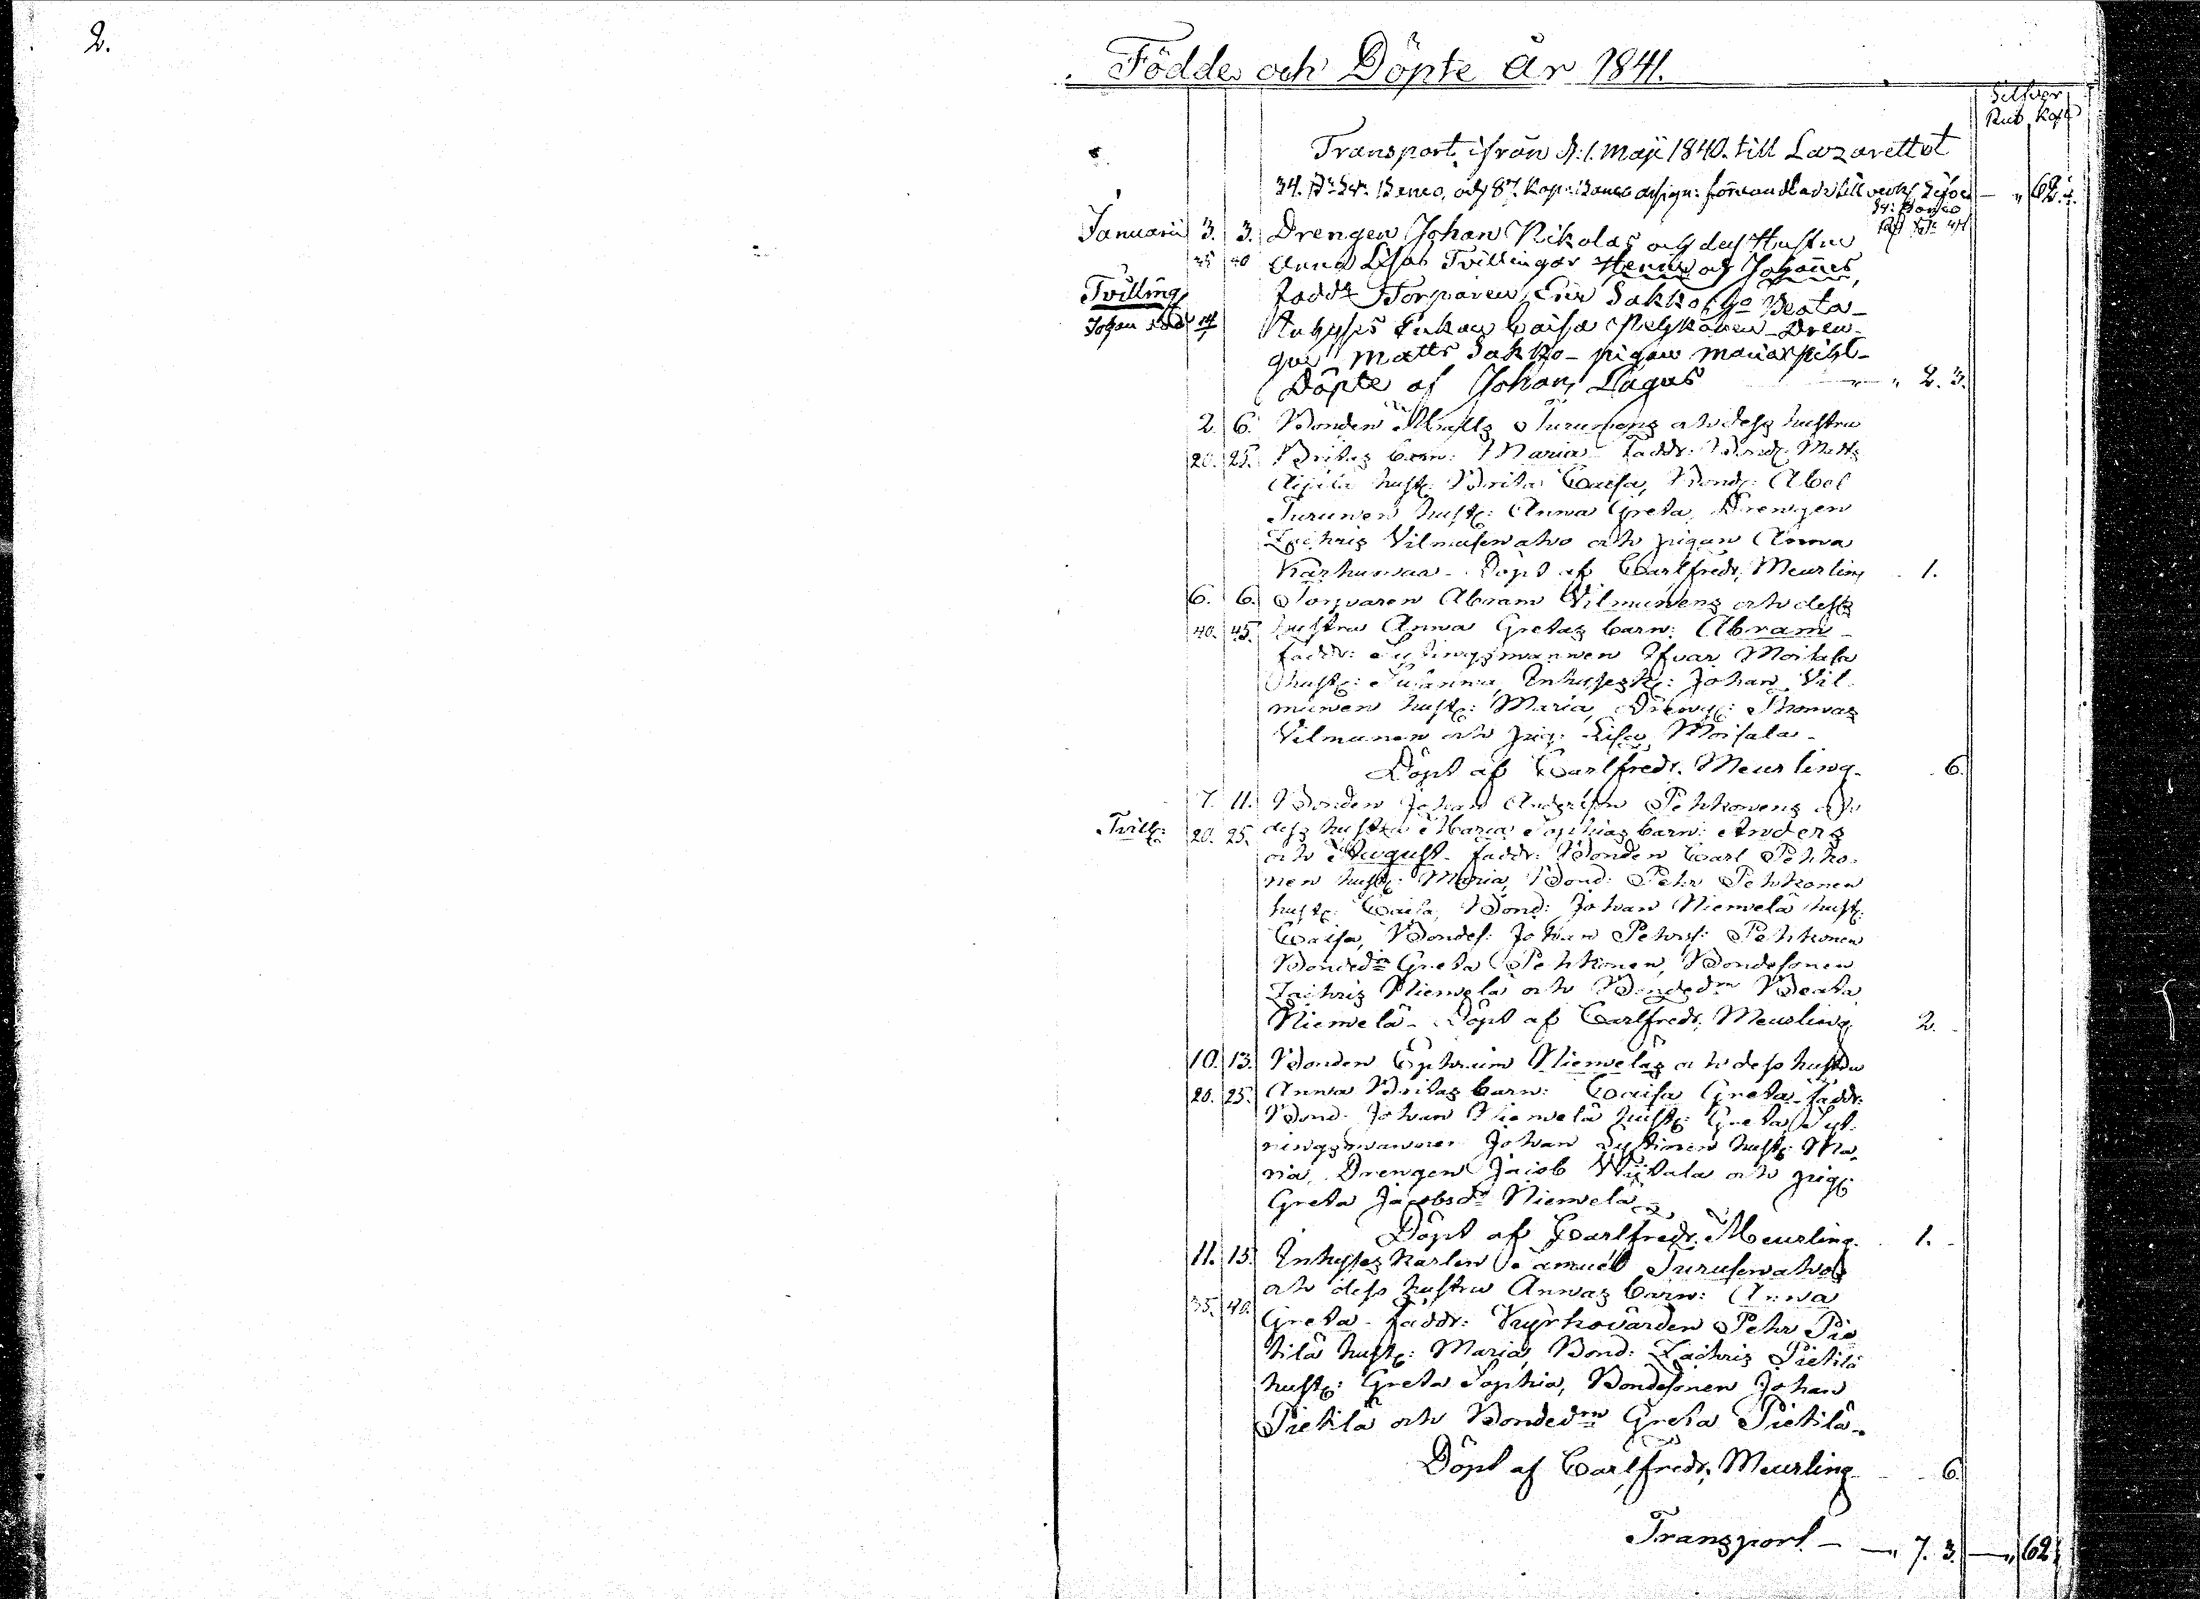 2.
Födde och Döpte år 1841.
Silfver
Rub. Kop.
Transport ifrån d: 1. Maji 1840. till Lazarettet
34. Banco, och 87. Kop: Banco förvandlade till 62.
Januarii 3. 3. Drengen Johan Nikolas och dess Hustru
35 40 Anna Lisas Tvillingar Henric och Johannes,
Tvilling faddr Torparen Eric Sakko, Beata
Johan 14 Caisa Pelkonen Dren-
gen Matts Sakko - pigan Maria
Döpte af Johan Lagus 2. 3.
2. 6. Bonden Matts Turunens och dess hustru
20. 25. Britas barn: Maria Faddr: Bond: Matts
hust: Brita Caisa, Bond: Abel
Turunen hust: Anna Greta, Drengen
Zachris och pigan Anna
Karhunen - Döpt af Carl Fredr. Meurling 1.
6. 6. Torparen Abram Vilmunens och dess
40. 45. hustru Anna Gretas barn: Abram -
faddr: Ifvar Moilala
hust: Susanna, Inhyses k: Johan Vil-
munen hust: Maria, Dreng: Thomas
Vilmunen och pig: Lisa Moisala -
Döpt af Carl Fredr. Meurling. 6.
7. 11. Bonden Johan Andersson Pehkonens och
Tvill: 20. 25. dess hustru Maria Sophias barn: Anders
och August. faddr: Bonden Carl Pehko-
nen hust: Maria, Bond: Pehr Pehkonen
hust: Caisa, Bond: Johan Niemelä hust:
Caisa, Bondes: Johan Pehrs: Pehkonen
Bonded:n Greta Pehkonen, Bondesonen
Zachris Niemelä och Bonded:n Beata
Niemelä - Döpt af Carl Fredr. Meurling 2.
10. 13. Bonden Ephraim Niemeläs och dess hustru
20. 25. Anna Britas barn: Caisa Greta - faddr:
Bond: Johan Niemelä hust: Greta, Syt-
ningsmannen Johan Lyttinen hust: Ma-
ria, Drengen Jacob och pig:
Greta Jacobsd:r Niemelä
Döpt af Carl Fredr. Meurling. 1.
11. 15. Inhyses Karlen Samuel Turusenahos
och dess hustru Annas barn: Anna
35. 40. Greta - faddr: Kyrkovärden Pehr Pie-
tilä hust: Maria, Bond: Zachris Pietilä
hust: Greta Sophia, Bondesonen Johan
Pietilä och Bonded:n Greta Pietilä -
Döpt af Carl Fredr. Meurling 6.
Transport - 7. 3. 62